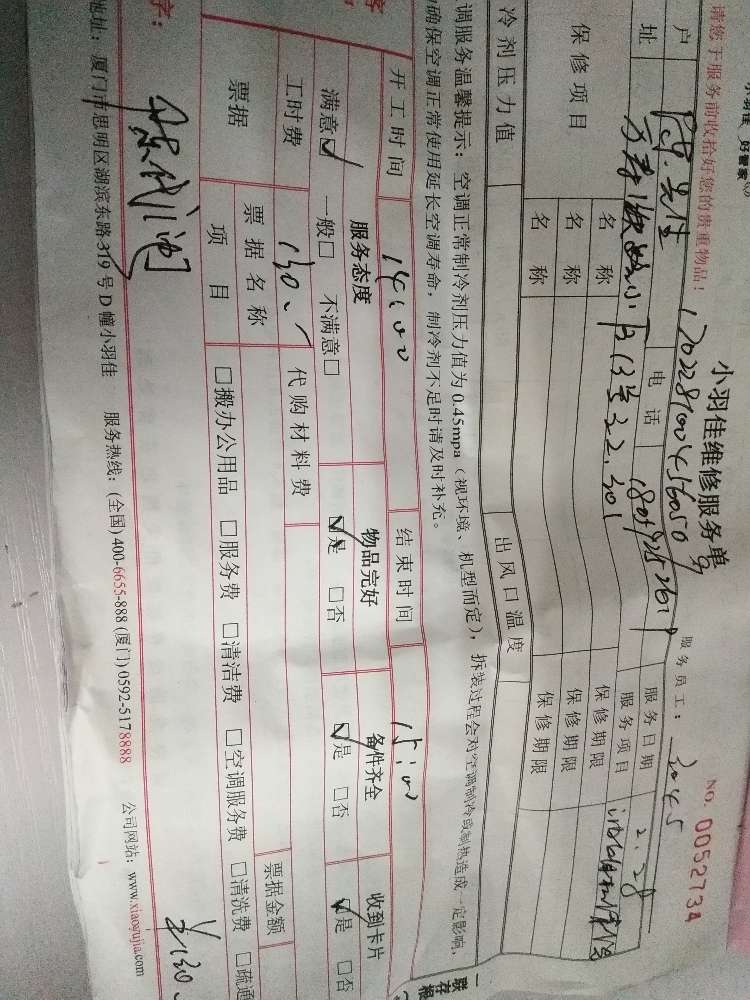 小羽佳 好管家
小羽佳维修服务单
NO. 0052734
请您于服务前收拾好您的贵重物品!
服务员工: 3045
户 陈先生 电话 服务日期 2.28
址 13号 301 服务项目
保修项目 名称 保修期限
名称 保修期限
名称 保修期限
冷剂压力值 出风口温度
调服务温馨提示: 空调正常制冷剂压力值为0.45mpa (视环境、机型而定), 拆装过程会对空调制冷或制热造成一定影响,
确保空调正常使用延长空调寿命, 制冷剂不足时请及时补充。
开工时间 14:00 结束时间 15:00
服务态度 物品完好 备件齐全 收到卡片
满意☑ 一般□ 不满意□ ☑是 □否 ☑是 □否 ☑是 □否
工时费 130 代购材料费
票据 票据名称 票据金额
项目 □搬办公用品 □服务费 □清洁费 □空调服务费 □清洗费 □疏通
¥130
字:
地址: 厦门市思明区湖滨东路319号D幢小羽佳 服务热线: (全国)400-6655-888 (厦门)0592-5178888 公司网站: www.xiaoyujia.com
一联存根